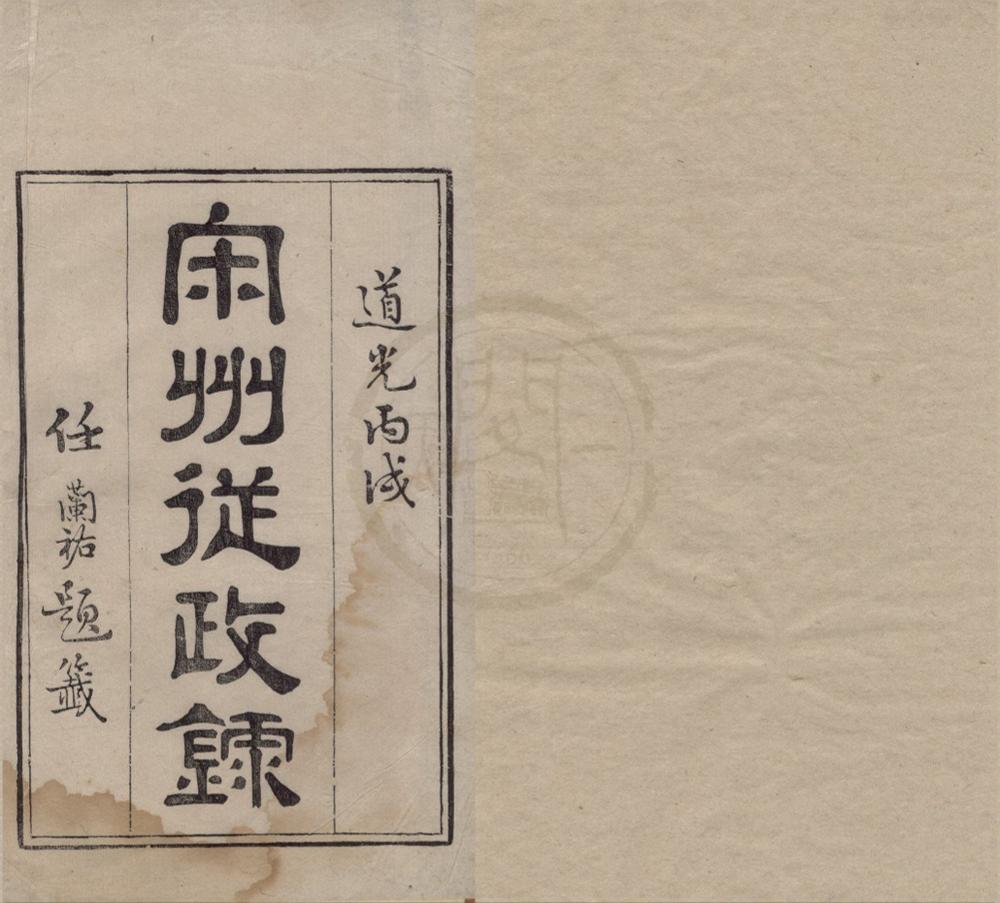 道光丙戌
宋州從政錄
任蘭祐題籤